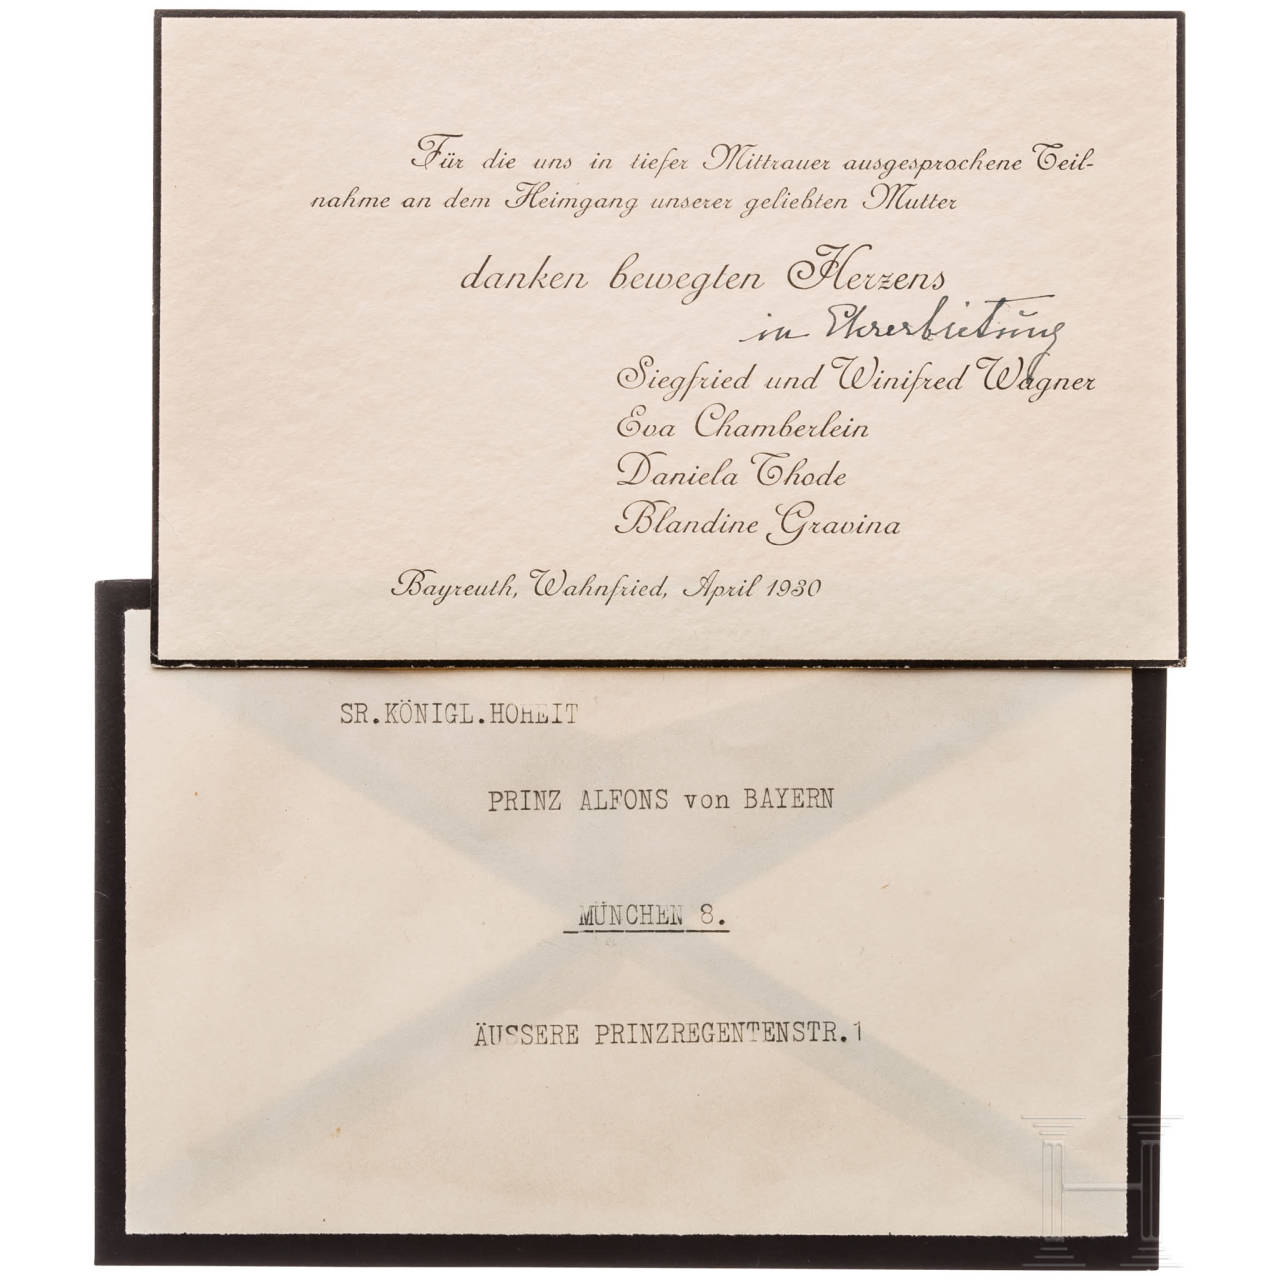 Für die uns in tiefer Mittrauer ausgesprochene Teil-
nahme an dem Heimgang unserer geliebten Mutter
danken bewegten Herzens
in Ehrerbietung
Siegfried und Winifred Wagner
Eva Chamberlein
Daniela Thode
Blandine Gravina
Bayreuth, Wahnfried, April 1930
SR.KÖNIGL.HOHEIT
PRINZ ALFONS von BAYERN
MÜNCHEN 8.
ÄUSSERE PRINZREGENTENSTR.1
H